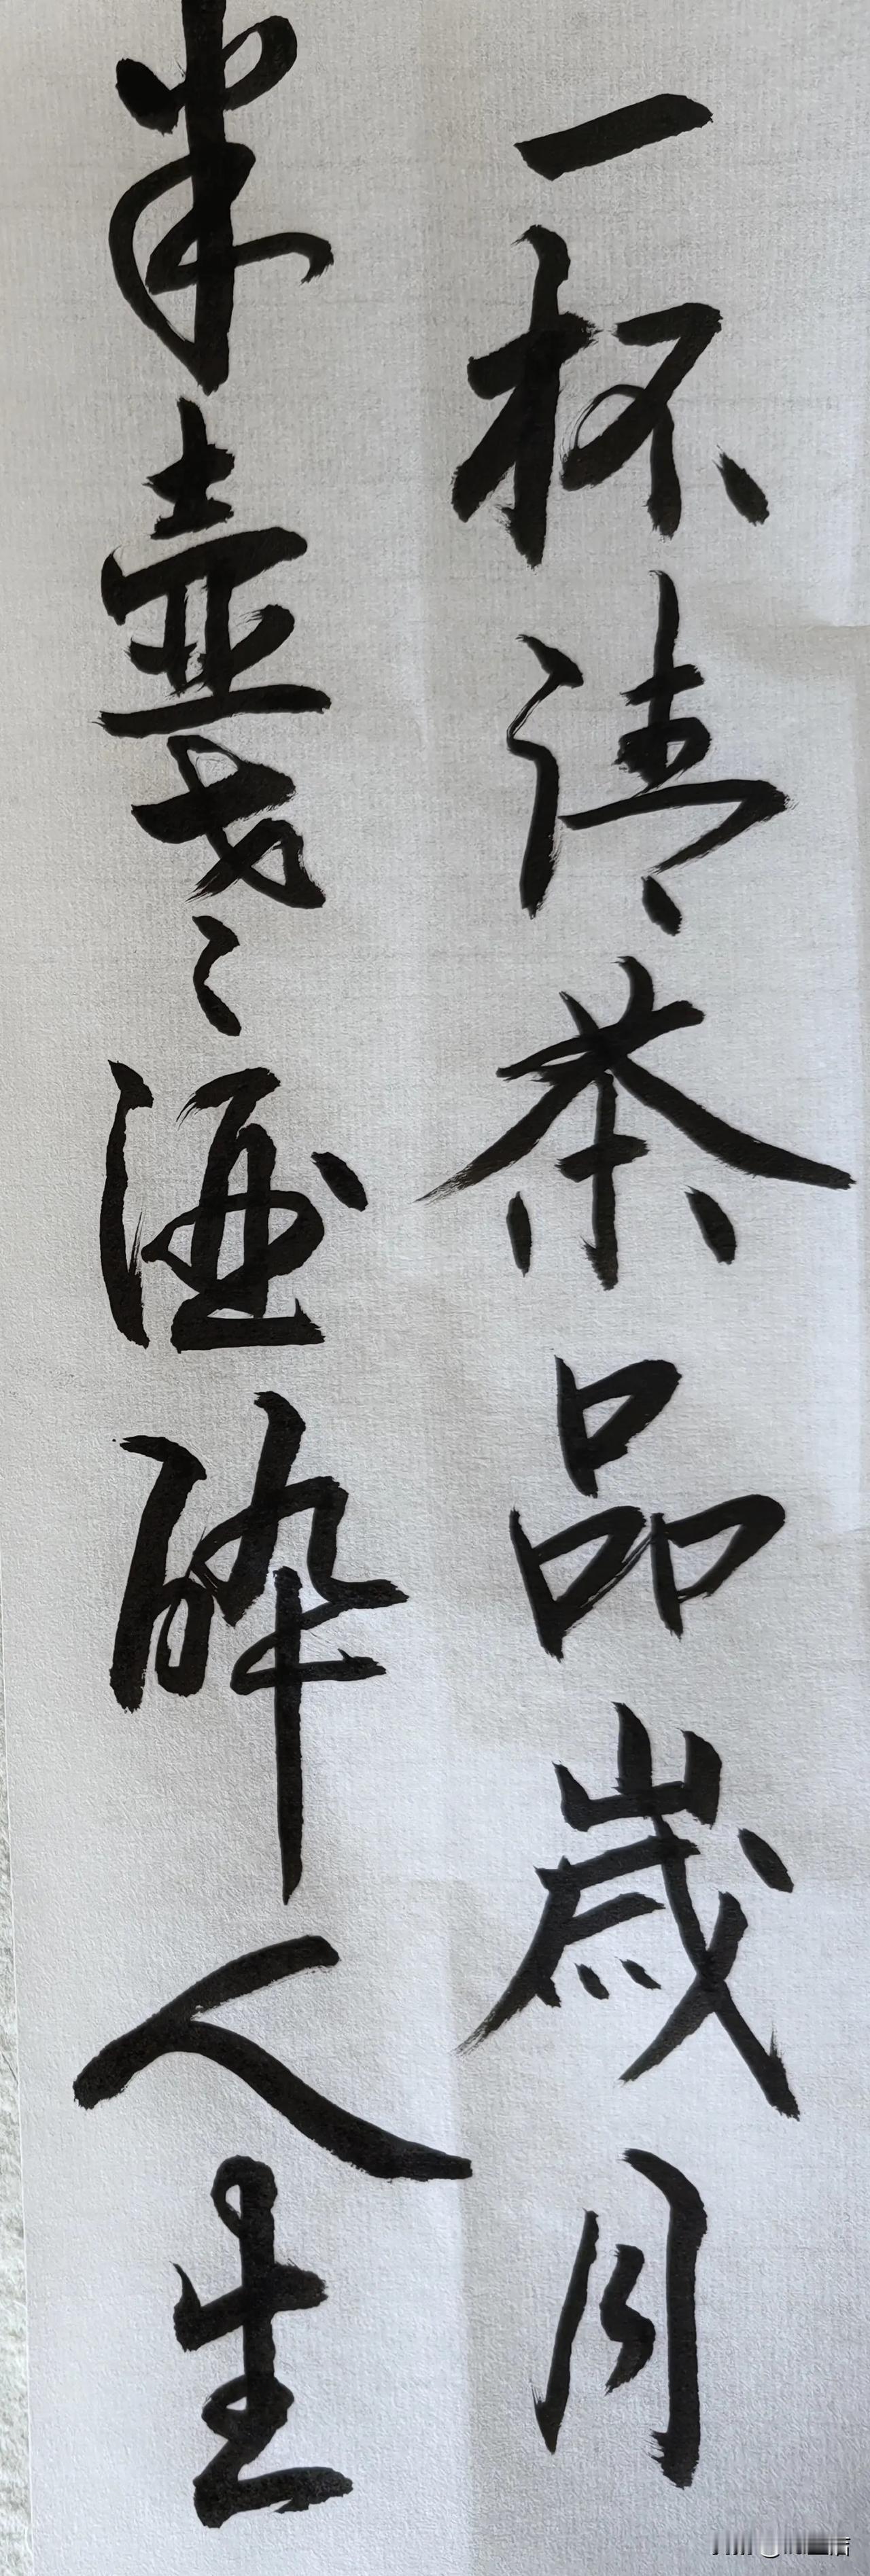 一杯清茶品歲月
半壶老酒醉人生